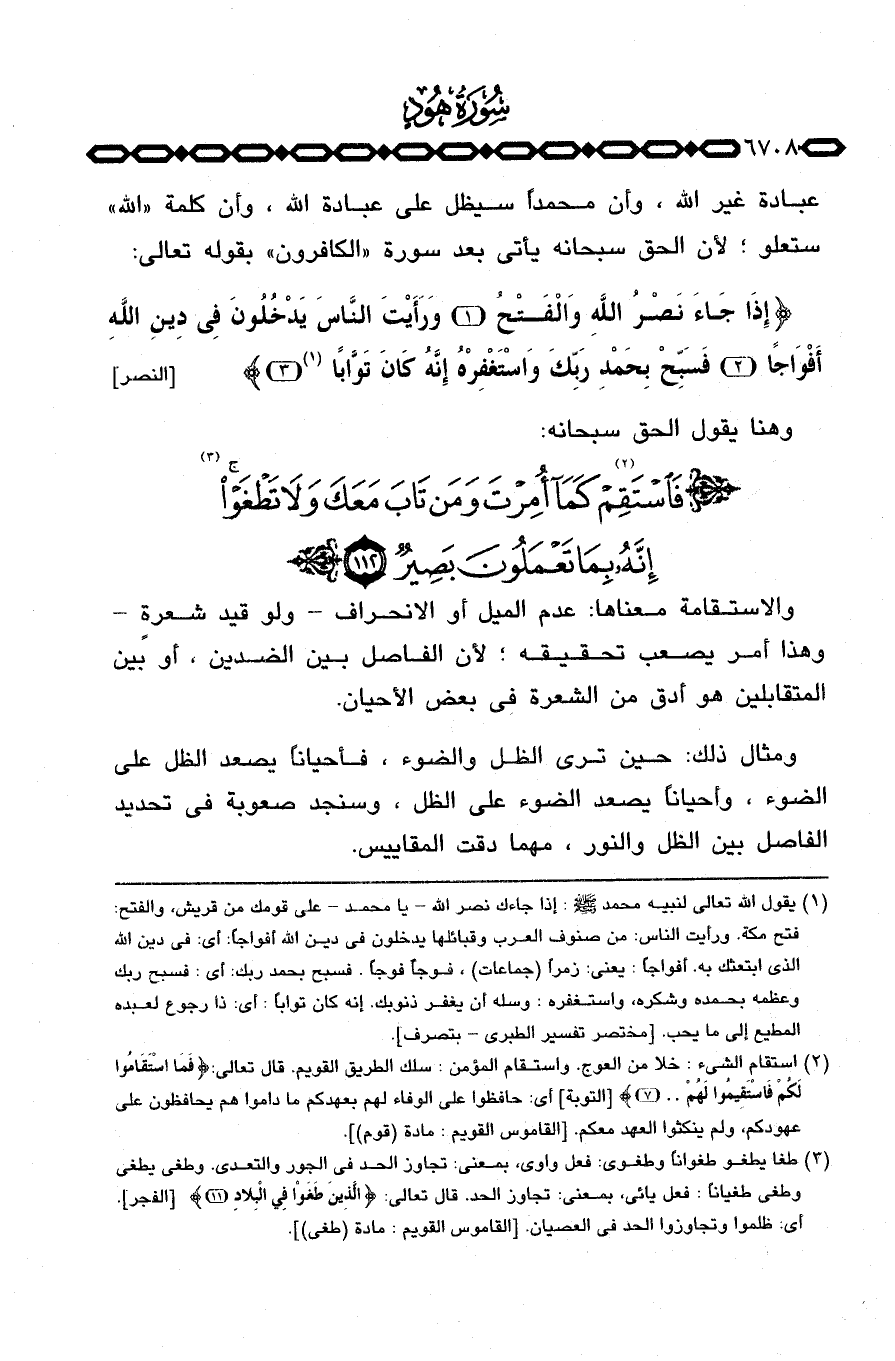 سُورَةُ هُودٍ
٦٧٠٨
عبادة غير الله ، وأن محمداً سيظل على عبادة الله ، وأن كلمة «الله»
ستعلو ؛ لأن الحق سبحانه يأتى بعد سورة «الكافرون» بقوله تعالى:
﴿ إِذَا جَاءَ نَصْرُ اللَّهِ وَالْفَتْحُ (١) وَرَأَيْتَ النَّاسَ يَدْخُلُونَ فِى دِينِ اللَّهِ
أَفْوَاجًا (٢) فَسَبِّحْ بِحَمْدِ رَبِّكَ وَاسْتَغْفِرْهُ إِنَّهُ كَانَ تَوَّابًا (١) (٣) ﴾ [النصر]
وهنا يقول الحق سبحانه:
﴿ فَٱسۡتَقِمۡ (٢) كَمَآ أُمِرۡتَ وَمَن تَابَ مَعَكَ وَلَا تَطۡغَوۡاْۚ (٣)
إِنَّهُۥ بِمَا تَعۡمَلُونَ بَصِيرٞ ١١٢ ﴾
والاستقامة معناها: عدم الميل أو الانحراف – ولو قيد شعرةٍ –
وهذا أمر يصعب تحقيقه ؛ لأن الفاصل بين الضدين ، أو بين
المتقابلين هو أدق من الشعرة فى بعض الأحيان.
ومثال ذلك: حين ترى الظل والضوء ، فأحياناً يصعد الظل على
الضوء ، وأحياناً يصعد الضوء على الظل ، وسنجد صعوبة فى تحديد
الفاصل بين الظل والنور ، مهما دقت المقاييس.
(١) يقول الله تعالى لنبيه محمد ﷺ : إذا جاءك نصر الله – يا محمد – على قومك من قريش، والفتح:
فتح مكة. ورأيت الناس: من صنوف العرب وقبائلها يدخلون فى دين الله أفواجاً: أى: فى دين الله
الذى ابتعثك به. أفواجاً : يعنى: زمراً (جماعات) ، فوجاً فوجاً . فسبح بحمد ربك: أى : فسبح ربك
وعظمه بحمده وشكره، واستغفره : وسله أن يغفر ذنوبك. إنه كان تواباً : أى: ذا رجوع لعبده
المطيع إلى ما يحب. [مختصر تفسير الطبرى – بتصرف].
(٢) استقام الشىء : خلا من العوج. واستقام المؤمن : سلك الطريق القويم. قال تعالى: ﴿ فَمَا اسْتَقَامُوا
لَكُمْ فَاسْتَقِيمُوا لَهُمْ .. (٧) ﴾ [التوبة] أى: حافظوا على الوفاء لهم بعهدكم ما داموا هم يحافظون على
عهودكم، ولم ينكثوا العهد معكم. [القاموس القويم : مادة (قوم)].
(٣) طغا يطغو طغواناً وطغوى: فعل واوى، بمعنى: تجاوز الحد فى الجور والتعدى. وطغى يطغى
وطغى طغياناً : فعل يائى، بمعنى: تجاوز الحد. قال تعالى: ﴿ الَّذِينَ طَغَوْا فِي الْبِلَادِ (١١) ﴾ [الفجر].
أى: ظلموا وتجاوزوا الحد فى العصيان. [القاموس القويم : مادة (طغى)].